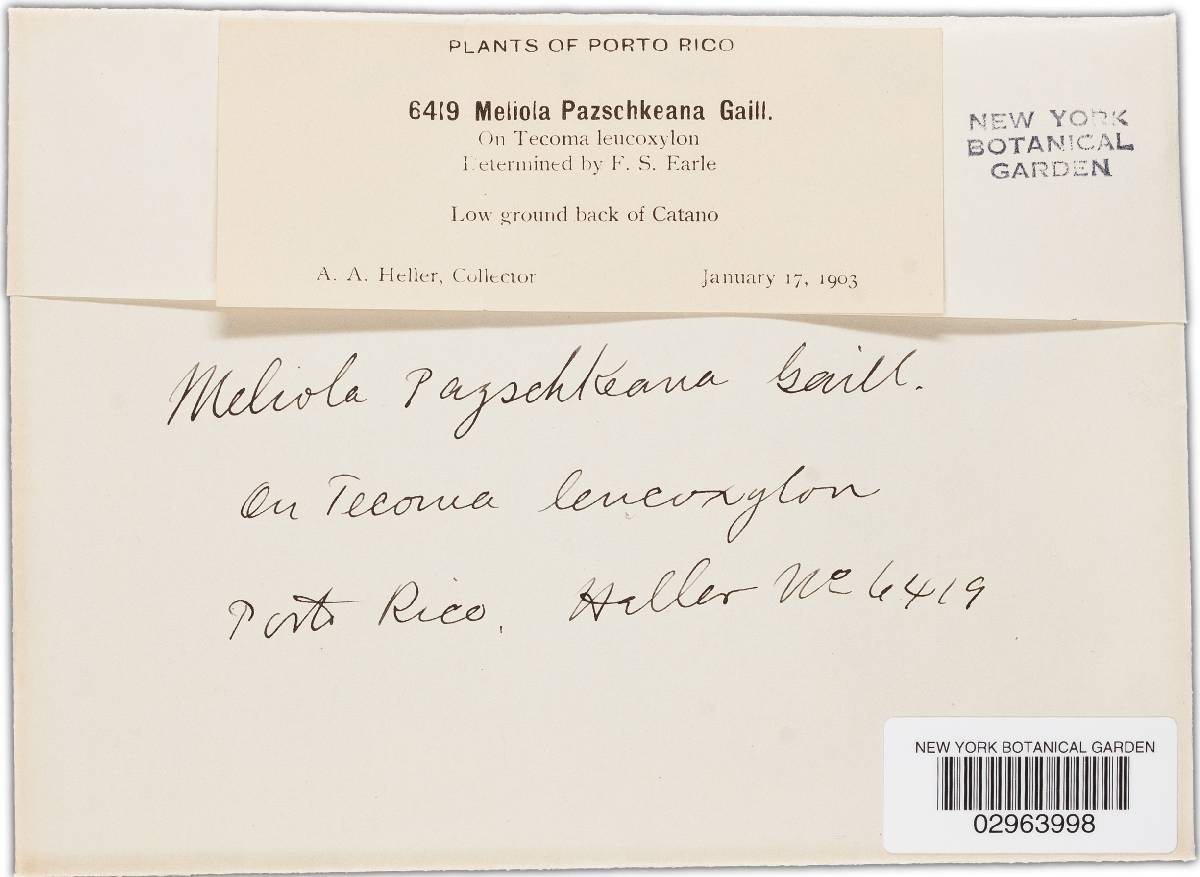 PLANTS OF PORTO RICO
6419 Meliola Pazschkeana Gaill.
On Tecoma leucoxylon
Determined by F. S. Earle
Low ground back of Catano
A. A. Heller, Collector January 17, 1903
NEW YORK
BOTANICAL
GARDEN
Meliola Pazschkeana Gaill.
On Tecoma leucoxylon
Porto Rico. Heller No 6419
NEW YORK BOTANICAL GARDEN
02963998